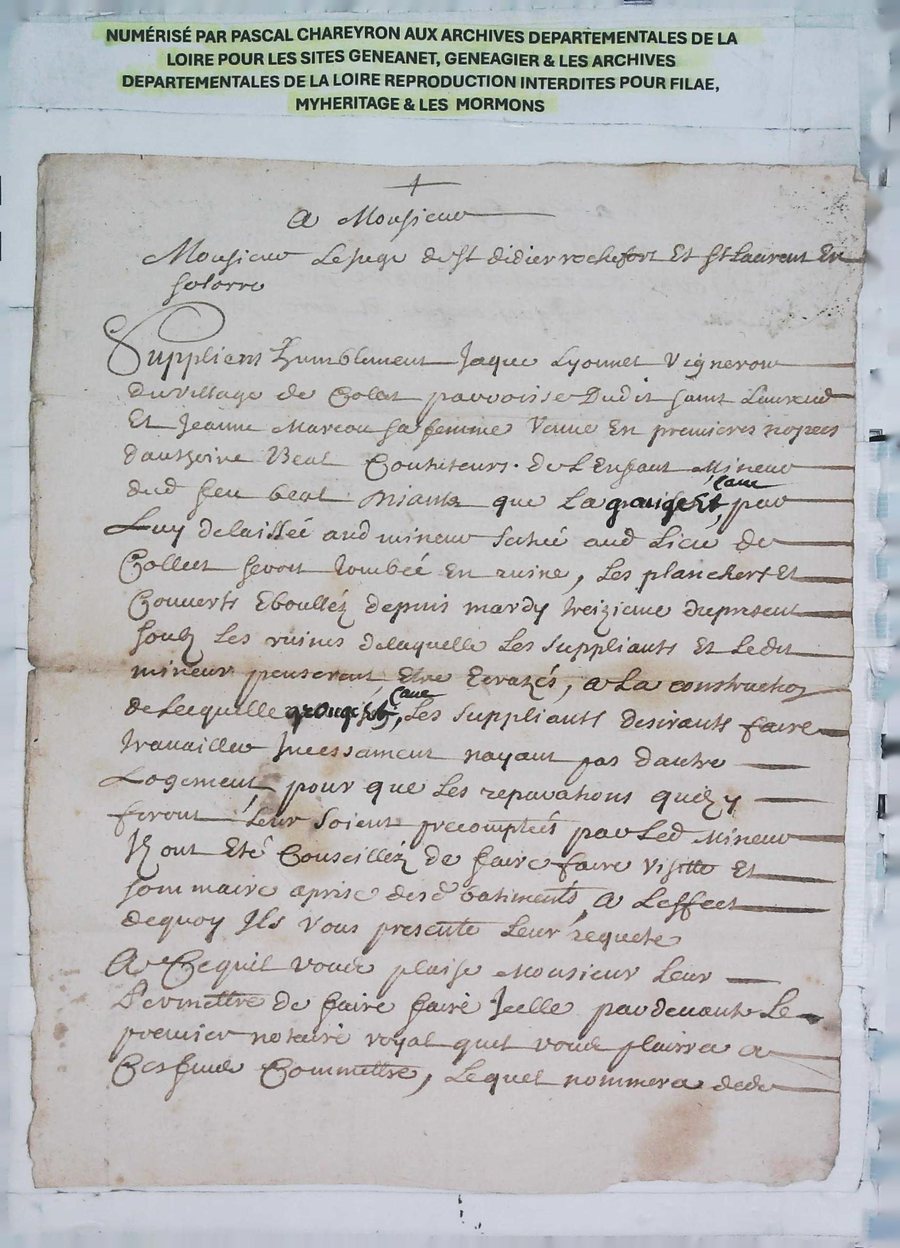 NUMÉRISÉ PAR PASCAL CHAREYRON AUX ARCHIVES DEPARTEMENTALES DE LA
LOIRE POUR LES SITES GENEANET, GENEAGIER & LES ARCHIVES
DEPARTEMENTALES DE LA LOIRE REPRODUCTION INTERDITES POUR FILAE,
MYHERITAGE & LES MORMONS
A Monsieur
Monsieur Le Juge de St didier rochefort Et St Laurent En
solorre
Supplient humblement Jaque Lyonnet Vigneron
du village de Collet parroisse Dudit saint Laurend
Et Jeanne Mareou sa femme Veuve En premieres nopces
d'anthoine Beal Coututeurs de L'Enfant Mineur
dud feu beal disants que La grange Et cave par
Luy delaissée aud mineur scitué aud Lieu de
Collet seroit tombée En ruine, Les planchers Et
Couverts Eboullés depuis mardy treizieme du present
soubz Les ruines de laquelle Les suppliants Et Ledit
mineur penserent Etre Ecrazés, a La construction
de Lecquelle grange Et cave, Les suppliants desirants faire
travailler Incessament nayant pas d'autre
Logement, pour que Les reparations quilz y
feront Leur soient precomptées par Led Mineur
Ilz ont Eté Conseilléz de faire faire visitte Et
sommaire aprise desd batiments, A Leffect
dequoy Ils vous presente Leur requete
A Cequil vous plaise Monsieur Leur
Permettre de faire faire Icelle pardevant Le
premier notaire royal quil vous plairra a
Ces fins Commettre, Lequel nommera de